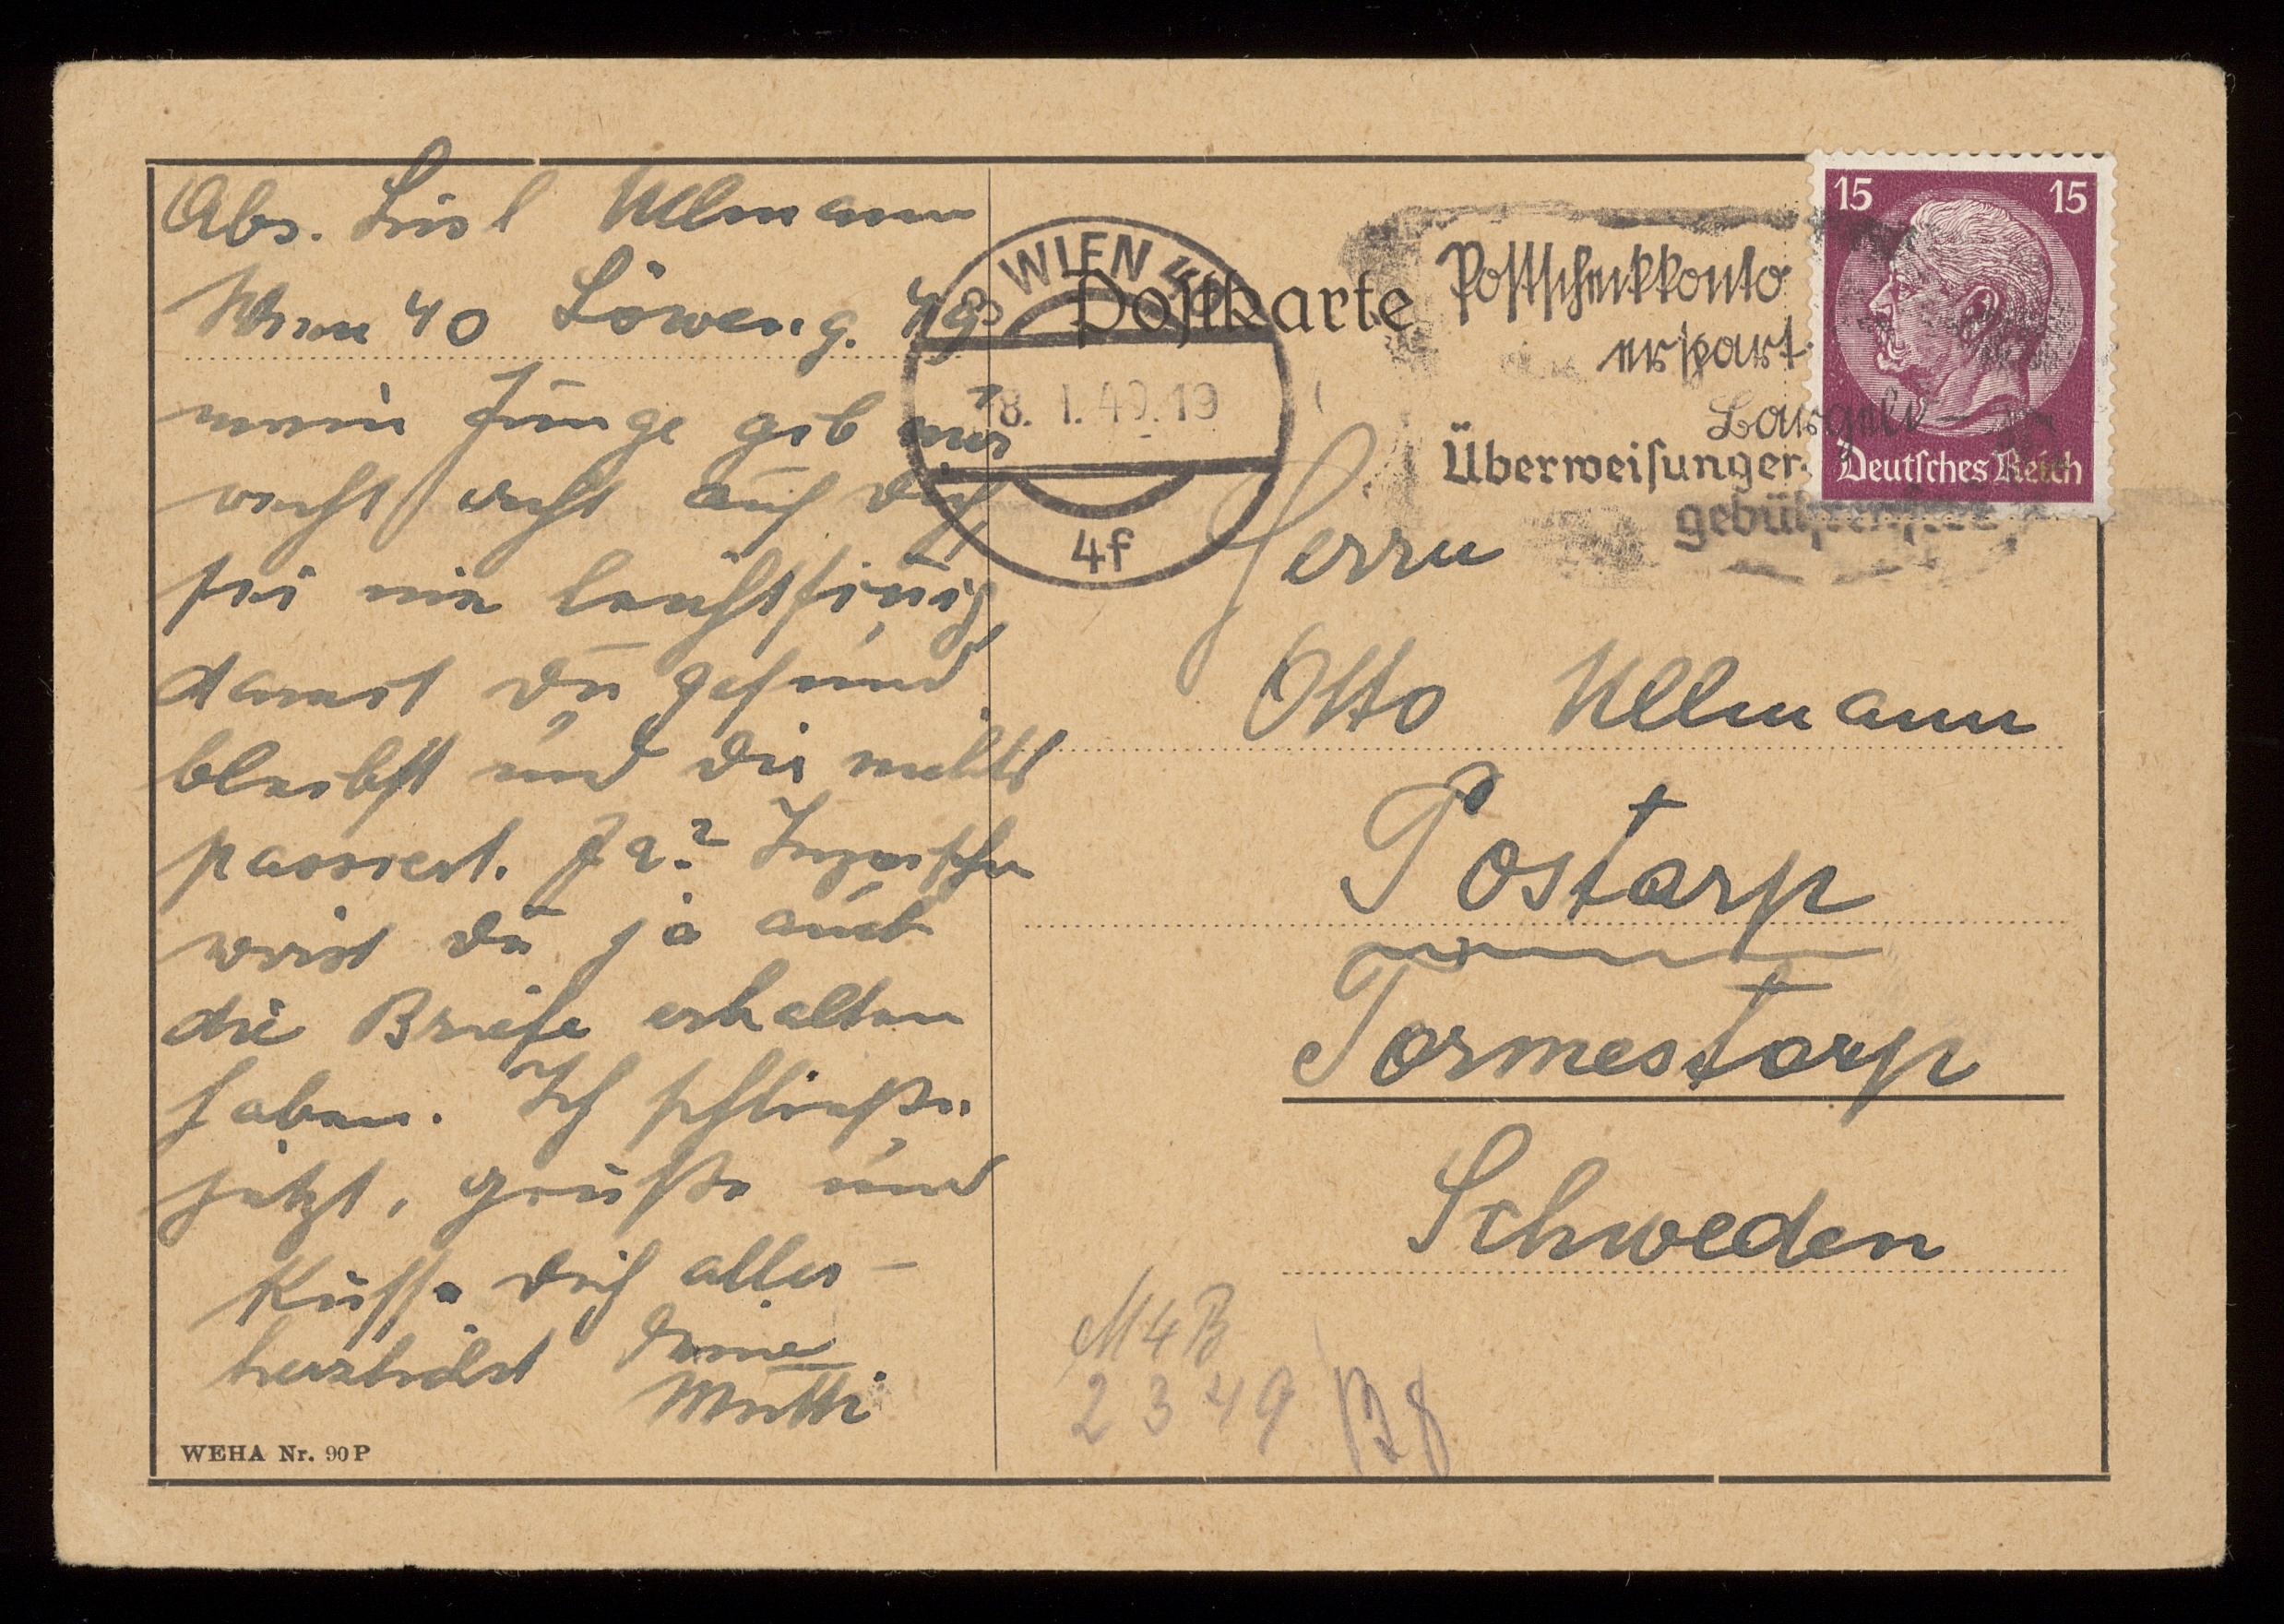 Abs. Lisl Ullmann
Wien 40 Löweng. 49
mein Junge gib nur
recht acht auf dich
sei nie leichtsinnig
damit du gesund
bleibst und dir nichts
passiert. Ja? Inzwischen
wirst du ja auch
die Briefe erhalten
haben. Ich schließe
jetzt, grüße und
Küsse dich aller-
herzlichst Deine
Mutti
WEHA Nr. 90 P
WIEN
8. 1. 40. 19
4f
Postkarte
Postscheckkonto
erspart
Bargeld
Überweisungen
gebührenfrei
15 15
Deutsches Reich
Herrn
Otto Ullmann
Postarp
Tormestorp
Schweden
M4B
2349